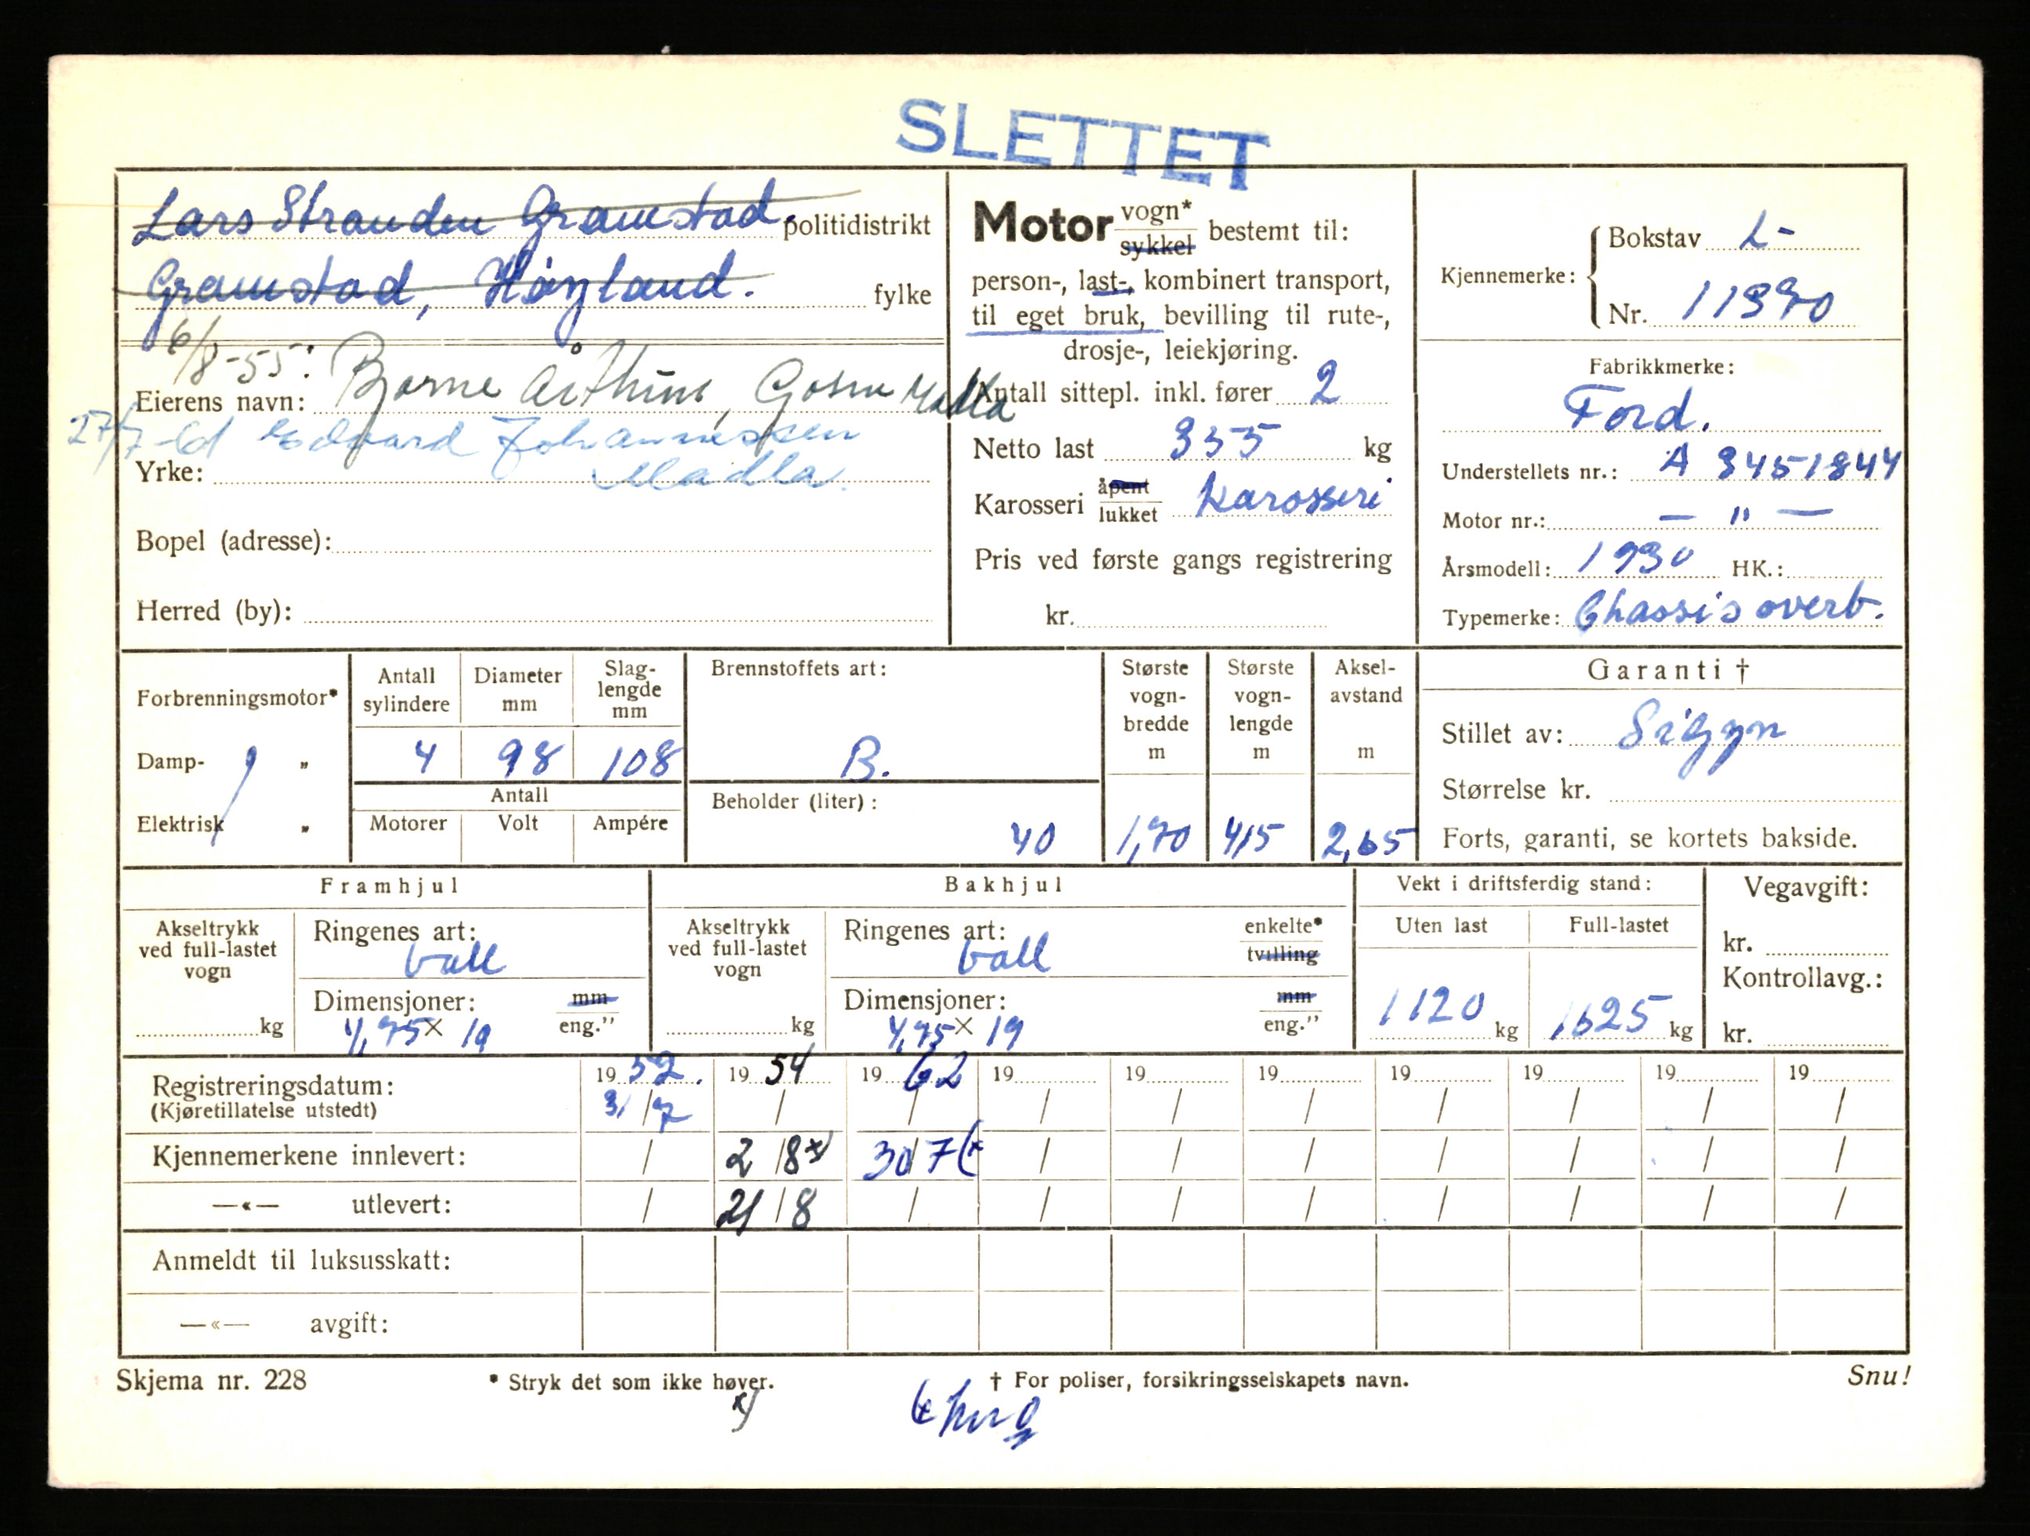 SLETTET
Lars Stranden Gramstad. politidistrikt
Gramstad, Høyland. fylke
6/8-55: Bjarne Arthur, Gosen Madla
Eierens navn:
27/7-61 Edvard Johannessen
Yrke: Madla.
Bopel (adresse):
Herred (by):
Motor vogn* sykkel bestemt til:
person-, last-, kombinert transport,
til eget bruk, bevilling til rute-,
drosje-, leiekjøring.
Antall sittepl. inkl. fører 2
Netto last 355 kg
Karosseri åpent lukket karosseri
Pris ved første gangs registrering
kr.
Kjennemerke: Bokstav L-
Nr. 11390
Fabrikkmerke:
Ford.
Understellets nr.: A 3451844
Motor nr.: — " —
Årsmodell: 1930 HK.:
Typemerke: Chassis overb.
Forbrenningsmotor*
Damp- „
Elektrisk „
Antall sylindere 4
Diameter mm 98
Slag-lengde mm 108
Antall
Motorer Volt Ampére
Brennstoffets art:
B.
Beholder (liter):
40
Største vogn-bredde m 1,70
Største vogn-lengde m 4,15
Aksel-avstand m 2,65
Garanti †
Stillet av: Sigyn
Størrelse kr.
Forts, garanti, se kortets bakside.
Framhjul
Akseltrykk ved full-lastet vogn
kg
Ringenes art:
ball
Dimensjoner: mm
4,75 × 19 eng.”
Bakhjul
Akseltrykk ved full-lastet vogn
kg
Ringenes art: enkelte*
ball tvilling
Dimensjoner: mm
4,75 × 19 eng.”
Vekt i driftsferdig stand:
Uten last Full-lastet
1120 kg 1625 kg
Vegavgift:
kr.
Kontrollavg.:
kr.
Registreringsdatum: 19 52. 19 54 19 62 19 19 19 19 19 19 19
(Kjøretillatelse utstedt) 31/7 / / / / / / / / /
Kjennemerkene innlevert: / 2/8 x) 30/7 (x / / / / / / /
—«— utlevert: / 21/8 / / / / / / / /
Anmeldt til luksusskatt:
—«— avgift:
Skjema nr. 228 * Stryk det som ikke høver. † For poliser, forsikringsselskapets navn. Snu!
x)